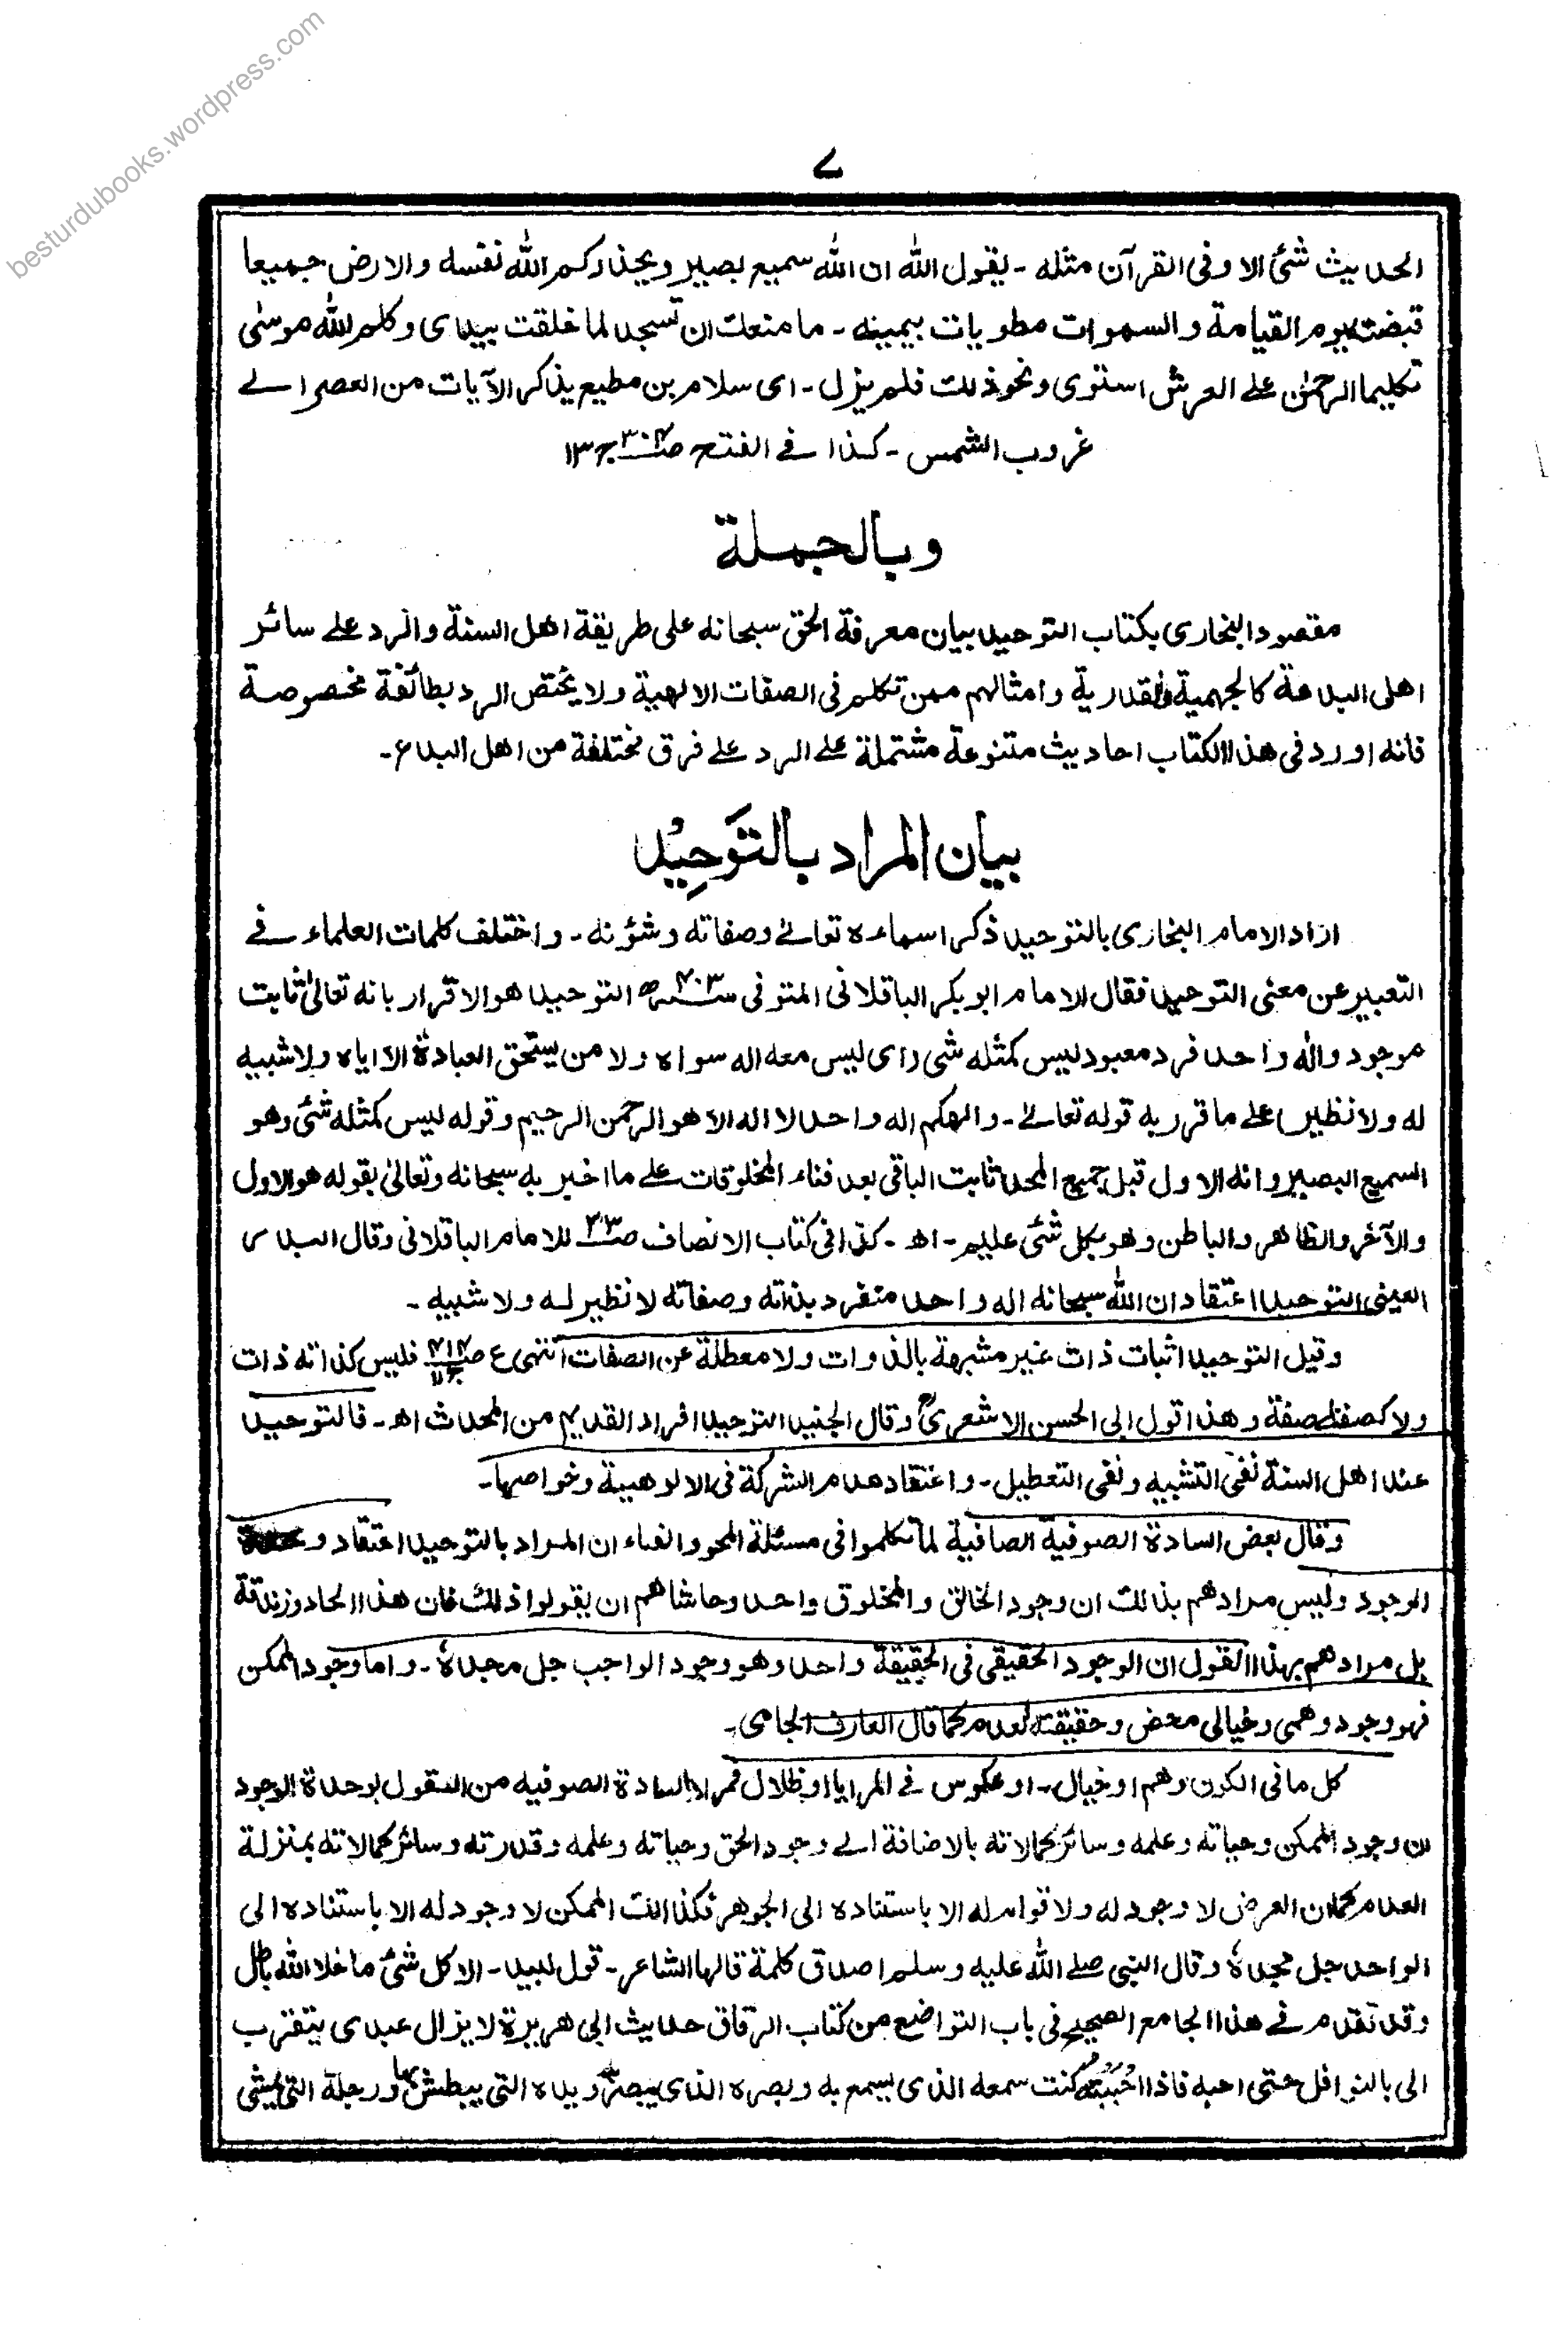 besturdubooks.wordpress.com
۷
الحديث شئ الا وفى القرآن مثله ـ يقول الله ان الله سميع بصير ويحذركم الله نفسه والارض جميعا
قبضته يوم القيامة والسموات مطويات بيمينه ـ ما منعك ان تسجد لما خلقت بيدى وكلم الله موسىٰ
تكليما الرحمٰن على العرش استوى ونحو ذلك فلم يزل ـ اى سلام بن مطيع يذكر الآيات من العصر الى
غروب الشمس ـ كذا فى الفتح صـ۳۰۴ ج۱۳
وبالجملة
مقصود البخارى بكتاب التوحيد بيان معرفة الحق سبحانه على طريقة اهل السنة والرد على سائر
اهلى البدعة كالجهمية والقدارية وامثالهم ممن تكلم فى الصفات الالهية ولا يختص الرد بطائفة مخصوصة
فانه اورد فى هذا الكتاب احاديث متنوعة مشتملة على الرد على فرق مختلفة من اهل البدع ـ
بيان المراد بالتَوحِيْد
اراد الامام البخارى بالتوحيد ذكر اسماءه تعالىٰ وصفاته وشؤنه ـ واختلف كلمات العلماء فى
التعبير عن معنى التوحيد فقال الامام ابو بكر الباقلانى المتوفى سـ۴۰۳ـنه التوحيد هو الاقرار بانه تعالىٰ ثابت
موجود واله واحد فرد معبود ليس كمثله شئ (اى ليس معه اله سواه ولا من يستحق العبادة الا اياه ولا شبيه
له ولا نظير) على ما قرر به قوله تعالىٰ ـ والهكم اله واحد لا اله الا هو الرحمن الرحيم وقوله ليس كمثله شئ وهو
السميع البصير وانه الاول قبل جميع المحدثات الباقى بعد فناء المخلوقات على ما اخبر به سبحانه وتعالىٰ بقوله هو الاول
والآخر والظاهر والباطن وهو بكل شئ عليم ـ اه ـ كذا فى كتاب الانصاف صـ۳۳ للامام الباقلانى وقال البدر
العينى التوحيد اعتقاد ان الله سبحانه اله واحد متفرد بذاته وصفاته لا نظير له ولا شبيه ـ
وقيل التوحيد اثبات ذات غير مشبهة بالذوات ولا معطلة عن الصفات انتهى ع صـ۴۱۴ ج۱۱ فليس كذاته ذات
ولا كصفته صفة وهذا قول ابى الحسن الاشعرىؒ وقال الجنيد التوحيد افراد القديم من المحدث اه ـ فالتوحيد
عند اهل السنة نفى التشبيه ونفى التعطيل ـ واعتقاد عدم الشركة فى الالوهيية وخواصها ـ
وقال بعض السادة الصوفية الصافية لما تكلموا فى مسئلة المحو والفناء ان المراد بالتوحيد اعتقاد وحدة
الوجود وليس مرادهم بذلك ان وجود الخالق والمخلوق واحد وحاشا هم ان يقولوا ذلك فان هذا الحاد وزندقة
بل مرادهم بهذا القول ان الوجود الحقيقى فى الحقيقة واحد وهو وجود الواجب جل مجدهٗ ـ واما وجود الممكن
فهو وجود وهمى وخيالى محض وحقيقته العدم كما قال العارف الجامى ـ
كل ما فى الكون وهم او خيال ـ او عكوس فى المرايا او ظلال فمراد السادة الصوفيه من القول بوحدة الوجود
ان وجود الممكن وحياته وعلمه وسائر كمالاته بالاضافة الى وجود الحق وحياته وعلمه وقدرته وسائر كمالاته بمنزلة
العدم كما ان العرض لا وجود له ولا قوام له الا باستناده الى الجوهر فكذالك الممكن لا وجود له الا باستناده الى
الواحد جل مجدهٗ وقال النبى صلى الله عليه وسلم اصدق كلمة قالها الشاعر ـ قول لبيد ـ الا كل شئ ما خلا الله باطل
وقد تقدم فى هذا الجامع الصحيح فى باب التواضع من كتاب الرقاق حديث ابى هريرة لا يزال عبدى يتقرب
الى بالنوافل حتى احبه فاذا احببته كنت سمعه الذى يسمع به وبصره الذى يبصر به ويده التى يبطش بها ورجلة التى يمشى